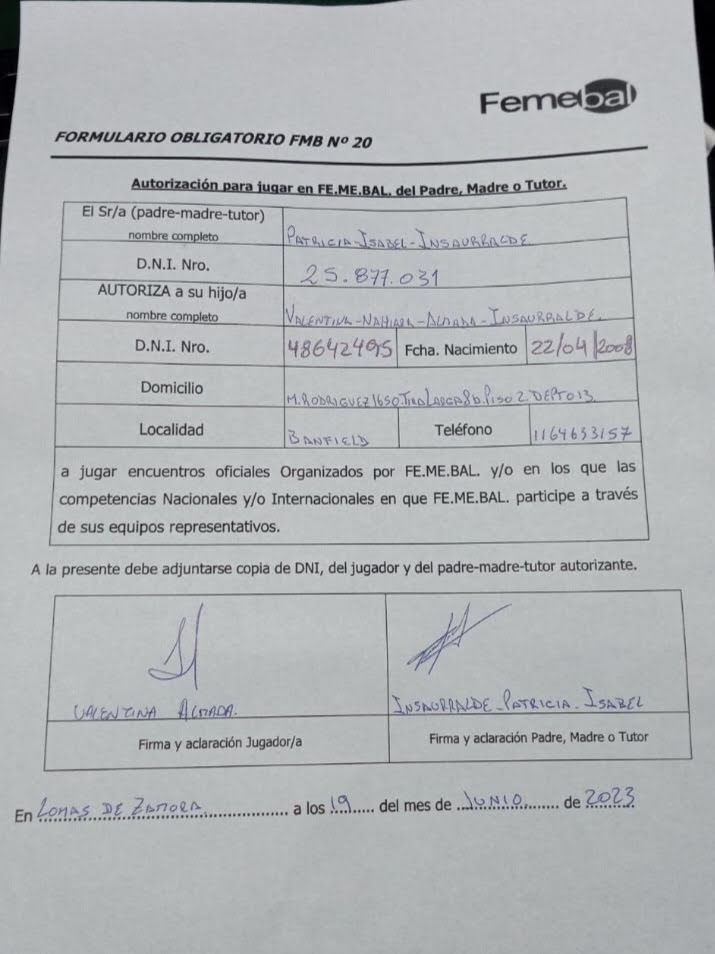 Femebal
FORMULARIO OBLIGATORIO FMB Nº 20
Autorización para jugar en FE.ME.BAL. del Padre, Madre o Tutor.
El Sr/a (padre-madre-tutor)
nombre completo
PATRICIA-ISABEL-INSAURRALDE
D.N.I. Nro.
25.877.031
AUTORIZA a su hijo/a
nombre completo
VALENTINA-NAHIARA-ALMADA-INSAURRALDE.
D.N.I. Nro. 48642495 Fcha. Nacimiento 22/04/2008
Domicilio M.RODRIGUEZ 1650.TIRA LARGA 8b.PISO 2.DEPTO 13
Localidad BANFIELD Teléfono 1164633157
a jugar encuentros oficiales Organizados por FE.ME.BAL. y/o en los que las
competencias Nacionales y/o Internacionales en que FE.ME.BAL. participe a través
de sus equipos representativos.
A la presente debe adjuntarse copia de DNI, del jugador y del padre-madre-tutor autorizante.
VALENTINA ALMADA.
INSAURRALDE-PATRICIA-ISABEL
Firma y aclaración Jugador/a
Firma y aclaración Padre, Madre o Tutor
En LOMAS DE ZAMORA a los 19 del mes de JUNIO de 2023